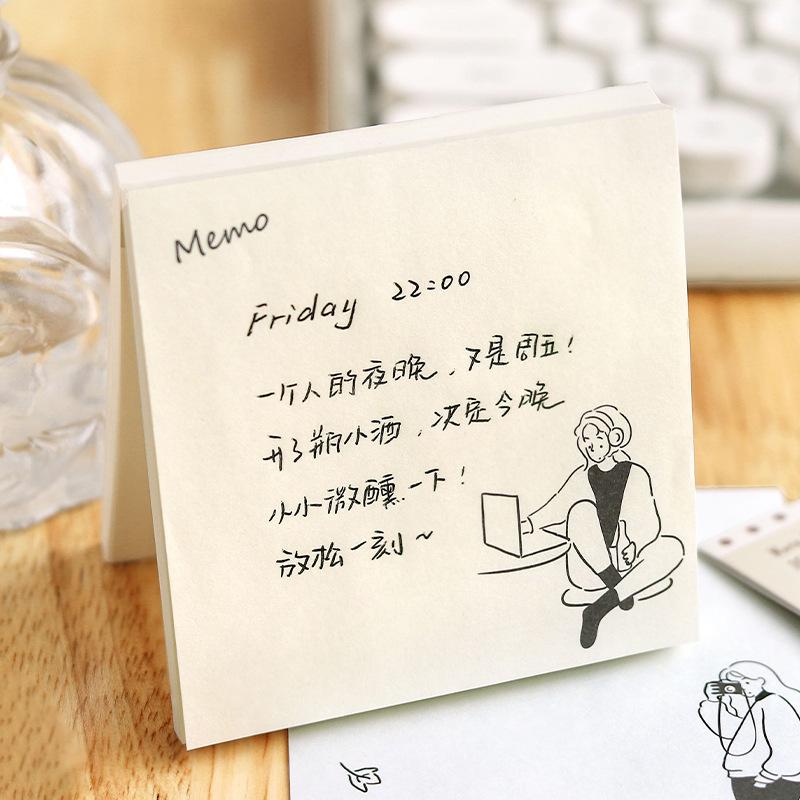 Memo
Friday 22:00
一个人的夜晚，又是周五！
开了瓶小酒，决定今晚
小小微醺一下！
放松一刻~